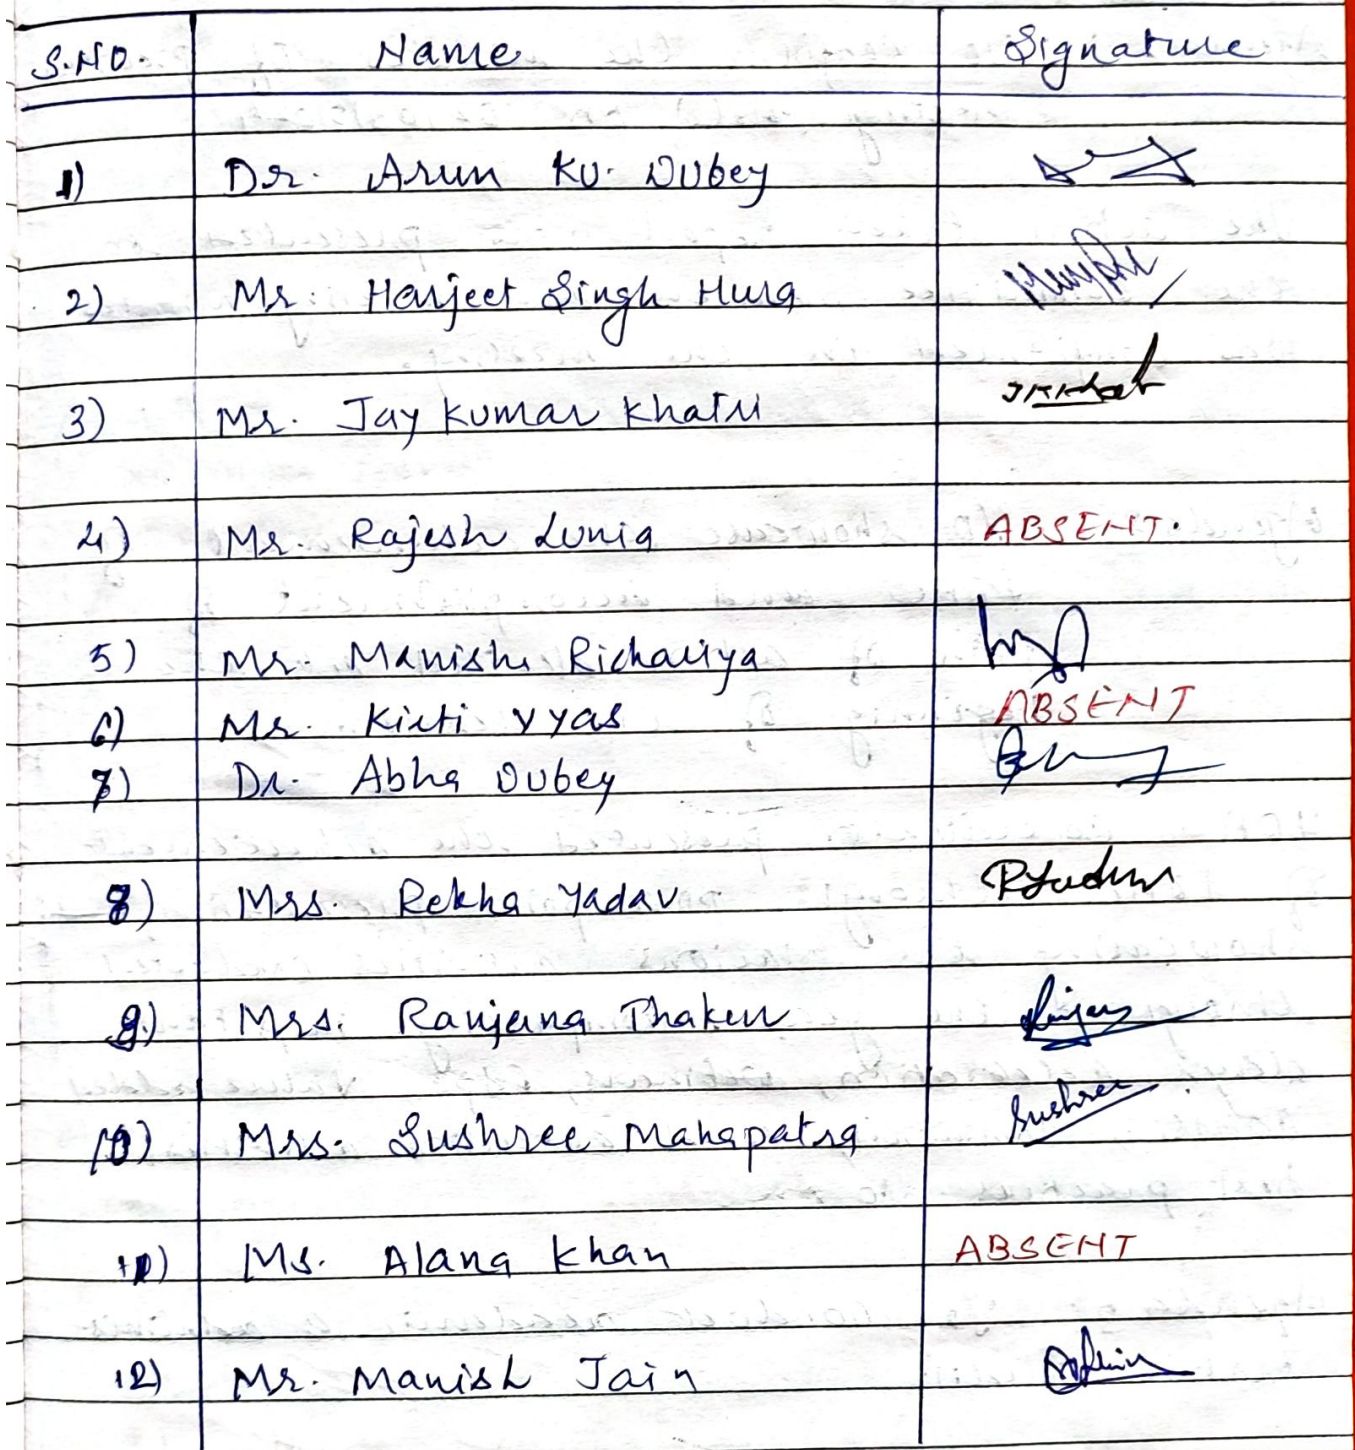 S.NO. Name Signature
1) Dr. Arun Ku. Dubey
2) Mr. Harjeet Singh Hura
3) Mr. Jay Kumar Khatri
4) Mr. Rajesh Lunia ABSENT.
5) Mr. Manish Richariya
6) Mr. Kirti Vyas ABSENT
7) Dr. Abha Dubey
8) Mrs. Rekha Yadav RYadav
9) Mrs. Ranjana Thakur
10) Mrs. Sushree Mahapatra Sushree
11) Ms. Alana Khan ABSENT
12) Mr. Manish Jain